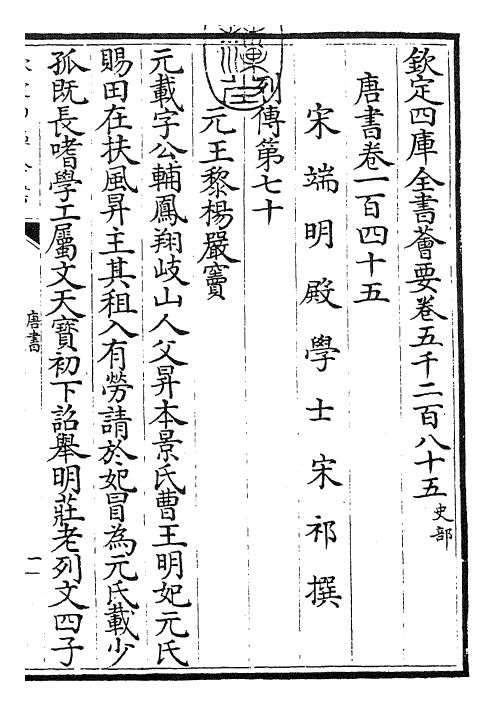 欽定四庫全書薈要卷五千二百八十五史部
唐書卷一百四十五
宋端明殿學士宋祁撰
列傳第七十
元王黎楊嚴竇
元載字公輔鳳翔岐山人父昇本景氏曹王明妃元氏
賜田在扶風昇主其租入有勞請於妃冒為元氏載少
孤既長嗜學工屬文天寶初下詔舉明莊老列文四子
唐書
一